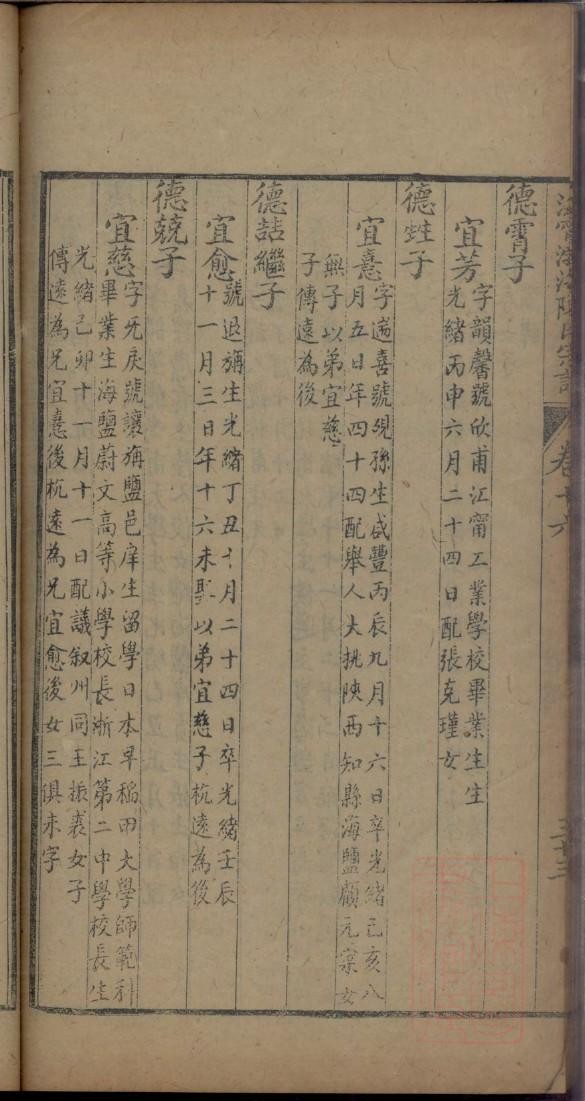 卷十六
德霄子
宜芳
字韻馨號欣甫江甯工業學校畢業生生
光緒丙申六月二十四日配張克瑾女
德蛀子
宜憙
字遄喜號蜆孫生咸豐丙辰九月十六日卒光緒己亥八
月五日年四十四配舉人大挑陝西知縣海鹽顧元寀女
無子以弟宜慈
子傳遠為後
德喆繼子
宜愈
號退旃生光緒丁丑十月二十四日卒光緒壬辰
十一月三日年十六未聘以弟宜慈子杭遠為後
德兢子
宜慈
字旡戾號讓旃鹽邑庠生留學日本早稻田大學師範科
畢業生海鹽蔚文高等小學校長浙江第二中學校長生
光緒己卯十一月十一日配議叙州同王振裘女子
傳遠為兄宜憙後杭遠為兄宜愈後女三俱未字